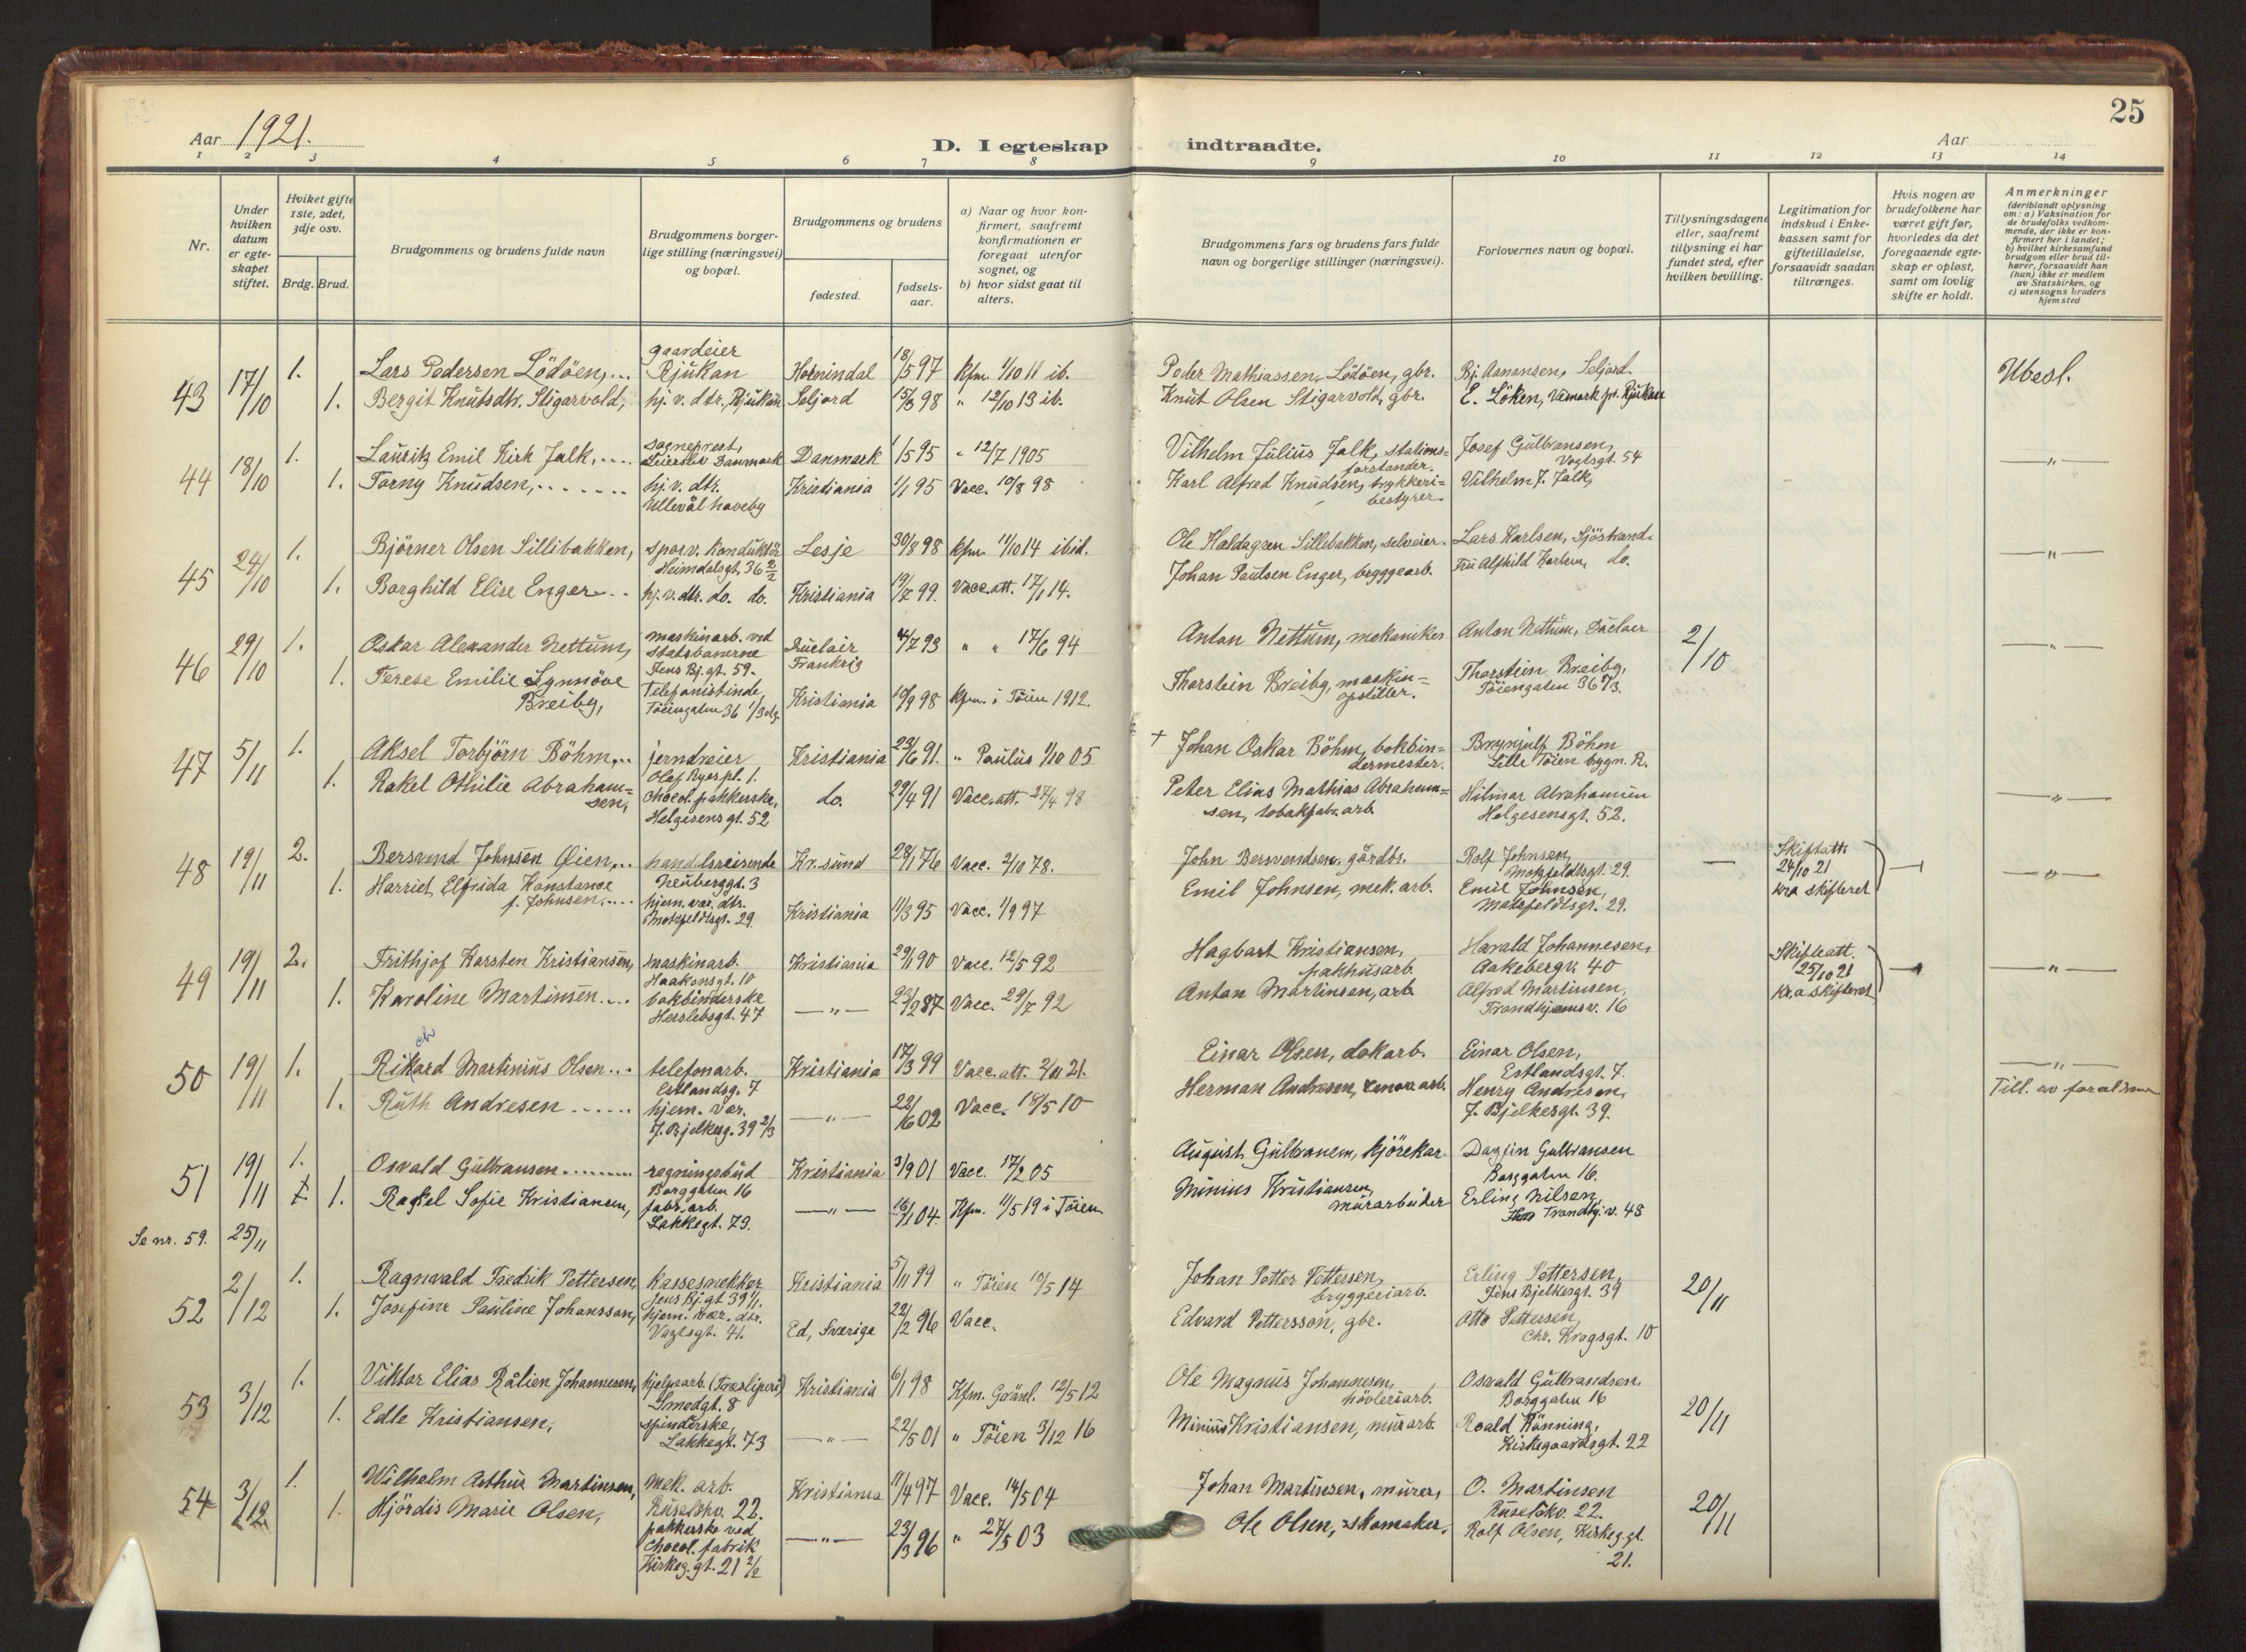 25
Aar 1921.
D. I egteskap indtraadte.
Aar
1 2 3 4 5 6 7 8 9 10 11 12 13 14
Nr.
Under hvilken datum er egteskapet stiftet.
Hviket gifte 1ste, 2det, 3dje osv.
Brdg. Brud.
Brudgommens og brudens fulde navn
Brudgommens borgerlige stilling (næringsvei) og bopæl.
Brudgommens og brudens
fødested.
fødselsaar.
a) Naar og hvor konfirmert, saafremt konfirmationen er foregaat utenfor sognet, og
b) hvor sidst gaat til alters.
Brudgommens fars og brudens fars fulde navn og borgerlige stillinger (næringsvei).
Forlovernes navn og bopæl.
Tillysningsdagene eller, saafremt tillysning ei har fundet sted, efter hvilken bevilling.
Legitimation for indskud i Enkekassen samt for giftetilladelse, forsaavidt saadan tiltrænges.
Hvis nogen av brudefolkene har været gift før, hvorledes da det foregaaende egteskap er opløst, samt om lovlig skifte er holdt.
Anmerkninger (deriblandt oplysning om: a) Vaksination for de brudefolks vedkommende, der ikke er konfirmert her i landet; b) hvilket kirkesamfund brudgom eller brud tilhører, forsaavidt han (hun) ikke er medlem av Statskirken, og c) utensogns bruders hjemsted
43 17/10 1. Lars Pedersen Lödöen,... gaardeier Rjukan Hornindal 18/5 97 Kfm. 1/10 11 ib. Peder Mathiassen Lödöen, gbr. Bj. Aanonsen, Seljord. Ubesl.
1. Bergit Knutsdtr. Stigarvold, hj. v. dtr., Rjukan Seljord 15/3 98 " 12/10 13 ib. Knut Olsen Stigarvold, gbr. E. Löken, Vemork pr. Rjukan
44 18/10 1. Lauritz Emil Kirk Falk,.... sogneprest, Danmark Danmark 1/5 95 " 12/7 1905 Vilhelm Julius Falk, stationsforstander. Josef Gulbransen, Vogtsgt. 54 —"—
1. Torny Knudsen,....... hj. v. dtr. Ullevål haveby Kristiania 1/1 95 Vacc. 10/8 98 Karl Alfred Knudsen, trykkeri=bestyrer. Vilhelm J. Falk,
45 24/10 1. Björner Olsen Sillibakken, sporv. konduktör Heimdalsgt. 36 2/2 Lesje 30/8 98 Kfm. 11/10 14 ibid. Ole Haldagren Sillibakken, selveier. Lars Karlsen, Sjöstrand. —"—
1. Borghild Elise Enger... hj. v. dtr. do. do. Kristiania 19/7 99. Vacc. att. 17/1 14. Johan Paulsen Enger, bryggearb. Fru Alfhild Karlsen, do.
46 29/10 1. Oskar Alexander Nettum, maskinarb. ved statsbanerne Jens Bj. gt. 59. Frankrig 4/7 93 " " 17/6 94 Anton Nettum, mekaniker Anton Nettum, 2/10 —"—
1. Terese Emilie Synnöve Breiby, Telefonistinde, Töiengaten 36 1/3 etg. Kristiania 10/9 98 Kfm. i Töien 1912. Thorstein Breiby, maskin=opstiller. Thorstein Breiby, Töiengaten 36 1/3.
47 5/11 1. Aksel Torbjörn Böhm,.. jerndreier Olaf Ryes pl. 1. Kristiania 23/6 91. " Paulus 1/10 05 + Johan Oskar Böhm, bokbindermester. Brynjulf Böhm Lille Töien bygn. R.
1. Rakel Othilie Abraham=sen, Chocol. pakkerske, Helgesens gt. 52 do. 29/4 91 Vacc. att. 27/4 98 Peter Elias Mathias Abraham=sen, tobakfabr. arb. Hilmar Abrahamsen Helgesensgt. 52. —"—
48 19/11 2. Bersvend Johnsen Öien... handelsreisende Neuberggt. 3 Kr.sund 28/1 76 Vacc. 2/10 78. John Bersvendsen, gårdbr. Rolf Johnsen, Motzfeldtsgt. 29. — Skifteatt. 24/10 21 Kr.a skifteret — —"—
1. Harriet Elfrida Konstance f. Johnsen,.... hjem. vær. dtr. Motzfeldtsgt. 29 Kristiania 11/3 95 Vacc. 1/9 97 Emil Johnsen, mek. arb. Emil Johnsen, Motzfeldtsgt. 29.
49 19/11 2. Frithjof Karsten Kristiansen, maskinarb. Haakonsgt. 10 Kristiania 29/1 90 Vacc. 12/5 92 Hagbart Kristiansen, pakhusarb. Harald Johannesen, Aakebergv. 40 Skifteatt. 25/10 21 Kr.a skifteret — —"—
1. Karoline Martinsen.... bokbinderske Herslebsgt. 47 —"— 23/2 87 Vacc. 29/7 92 Anton Martinsen, arb. Alfred Martinsen, Trondhjemsv. 16
ch
50 19/11 1. Rikard Martinius Olsen... telefonarb. Estlandsg. 7 Kristiania 17/3 99 Vacc. att. 2/11 21. Einar Olsen, dokarb. Einar Olsen, Estlandsgt. 7. —"—
1. Ruth Andresen...... hjem. vær. J. Bjelkesg. 39 2/3 —"— 22/6 02 Vacc. 18/5 10 Herman Andresen, renov. arb. Henry Andresen, J. Bjelkesgt. 39. Till. av foreldrene
51 19/11 1. Osvald Gulbransen........ regningsbud Borggaten 16 Kristiania 3/9 01 Vacc. 17/2 05 August Gulbransen, kjörekar. Dagfin Gulbransen Borggaten 16.
1. Rakel Sofie Kristiansen, fabr. arb. Lakkegt. 73. —"— 16/1 04. Kfm. 11/5 19 i Töien Minius Kristiansen, murarbeider Erling Nilsen, Trondhj. v. 48
Se nr. 59. 25/11
52 2/12 1. Ragnvald Fredrik Pettersen, Kassesnekker Jens Bj. gt 39 1/1. Kristiania 5/11 99 " Töien 10/5 14 Johan Petter Pettersen, bryggeriarb. Erling Pettersen, Jens Bjelkesgt. 39 20/11
1. Josefine Pauline Johansson, hjem. vær. dtr. Vogtsgt. 41. Ed, Sverige 22/2 96 Vacc. Edvard Pettersson, gbr. Otto Pettersen, Chr. Krogsgt. 10
53 3/12 1. Viktor Elias Rålien Johannesen, hjelpearb. (Træsliperi) Smedgt. 8 Kristiania 6/1 98 Kfm. Grönl. 12/5 12 Ole Magnus Johannesen, hövleriarb. Osvald Gulbrandsen. Borggaten 16 20/11
1. Edle Kristiansen, spinderske, Lakkegt. 73 —"— 22/5 01 " Töien 3/12 16 Minius Kristiansen, murarb. Roald Rönning, Kirkegaardsgt. 22
54 3/12 1. Wilhelm Arthur Martinsen, mek. arb. Ruselökv. 22. Kristiania 11/4 97 Vacc. 14/5 04 Johan Martinsen, murer, O. Martinsen Ruselökv. 22. 20/11
1. Hjördis Marie Olsen, pakkerske ved chocol. fabrik Kirkeg. gt. 21 2/2 —"— 23/3 96 " 27/5 03 Ole Olsen, skomaker. Rolf Olsen, Kirkeg gt. 21.